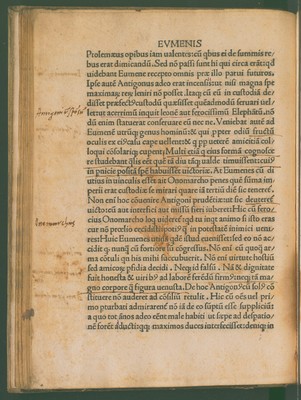 EVMENIS
Ptolemæus opibus iam ualentes: cū qbus ei de summis re
bus erat dimicandū. Sed nō passi sunt hi qui circa erāt: qd
uidebant Eumene recepto omnis præ illo parui futuros.
Ipse autē Antigonus adeo erat incensus: ut nisi magna spe
maximaq; re leniri nō posset. Itaq; cū eū in custodiā de
disset & præfectꝰ custodū quæsisset quēadmodū seruari uel
let: ut acerrimū inquit leonē aut ferocissimū Elephātū. nō
dū enim statuerat conseruare eū nec ne. Veniebāt autē ad
Eumenē utrūq; genus hominū: & qui ppter odiū fructū
oculis ex ei casu cape uellent: & q ppter ueterē amicitiā col
loqui cōsolariq; cuperent. Multi etiā q eius formā cognosce
re studebant qlis eēt quē tā diu tāq; ualde timuissent: cuiꝰ
in pnicie positā spē habuissēt uictoriæ. At Eumenes cū di
utius in uinculis esset: ait Onomarcho penes quē sūma im
perii erat custodiæ se mirari quare iā tertiū diē sic teneret.
Non eni hoc cōuenire Antigoni prudētiæ: ut sic deuteret
uicto: cū aut interfici aut missū fieri iuberet. Hic cū fero
cius Onomarcho loqui uideret qd tu inqt animo si isto eras
cur nō prœlio cecidisti
uenis? Huic Eumenes
cidit: q nunq̄ cū fortiore sū cōgressus. Nō eni cū quoq̄ ar
ma cōtuli qn his mihi succubuerit. Nō eni uirtute hostiū
sed amicorꝝ pfidia decidi. Neq; id falsū. Nā & dignitate
fuit honesta & uiribꝰ ad laborē ferēdū firmꝰ: neq; tā ma
gno corpore q̄ figura uenusta. De hoc Antigonꝰ cū solꝰ cō
stituere nō auderet ad cōsiliū rettulit. Hic cū oēs
mo pturbati admirarent nō iā de eo sūptū esse suppliciū
a quo tot ānos adeo eēnt male habiti ut sæpe ad despatio
nē forēt adducti: qq; maximos duces interfecisset: deniq; in